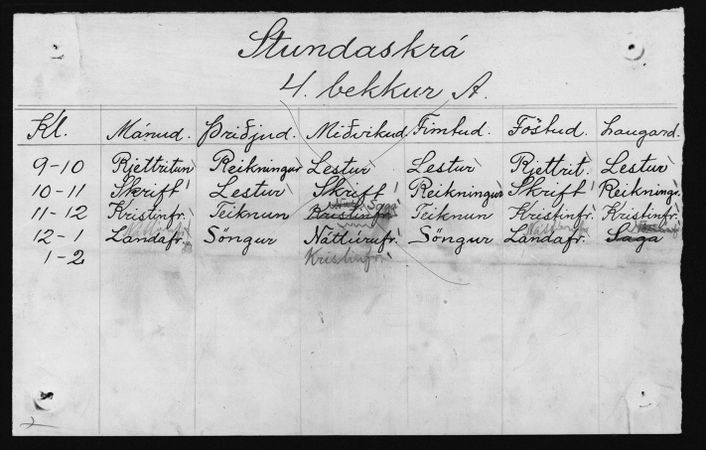 Stundaskrá
4. bekkur A.
Kl. Mánud. Þriðjud. Miðvikud. Fimtud. Föstud. Laugard.
9-10 Rjettritun Reikningur Lestur Lestur Rjettrit. Lestur
10-11 Skrift Lestur Skrift Reikningur Skrift Reikningr.
Saga
11-12 Kristinfr. Teiknun Kristinfr. Teiknun Kristinfr. Kristinfr.
12-1 Landafr. Söngur Náttúrufr. Söngur Landafr. Saga
1-2 Kristinfr.